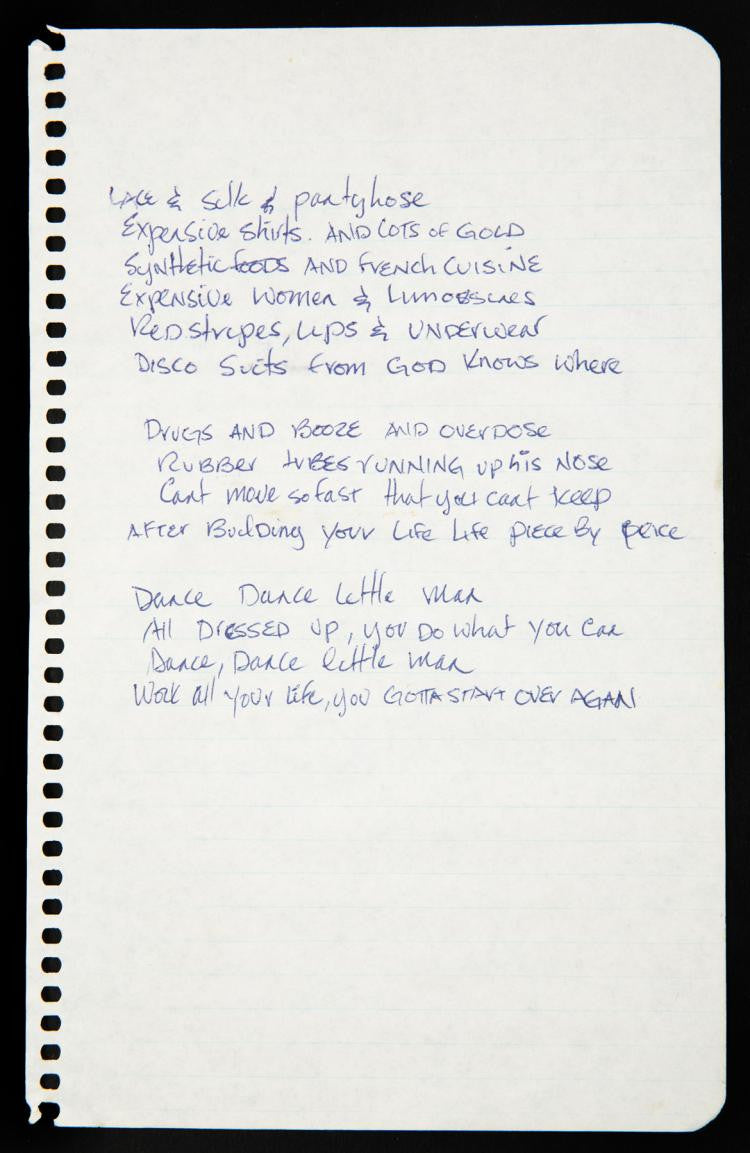 Lace & Silk & pantyhose
Expensive Shirts. AND LOTS OF GOLD
Synthetic foods AND French Cuisine
Expensive Women & Limo
Red stripes, Lips & UNDERWEAR
Disco Suits from GOD Knows Where
Drugs AND Booze AND OVERDOSE
RUBBER tubes RUNNING up his NOSE
Cant move so fast that you cant keep
AFTER Building your Life Life piece By peice
Dance Dance little Man
All Dressed up, you Do what you can
Dance, Dance little man
Work all your life, you GOTTA START OVER AGAN